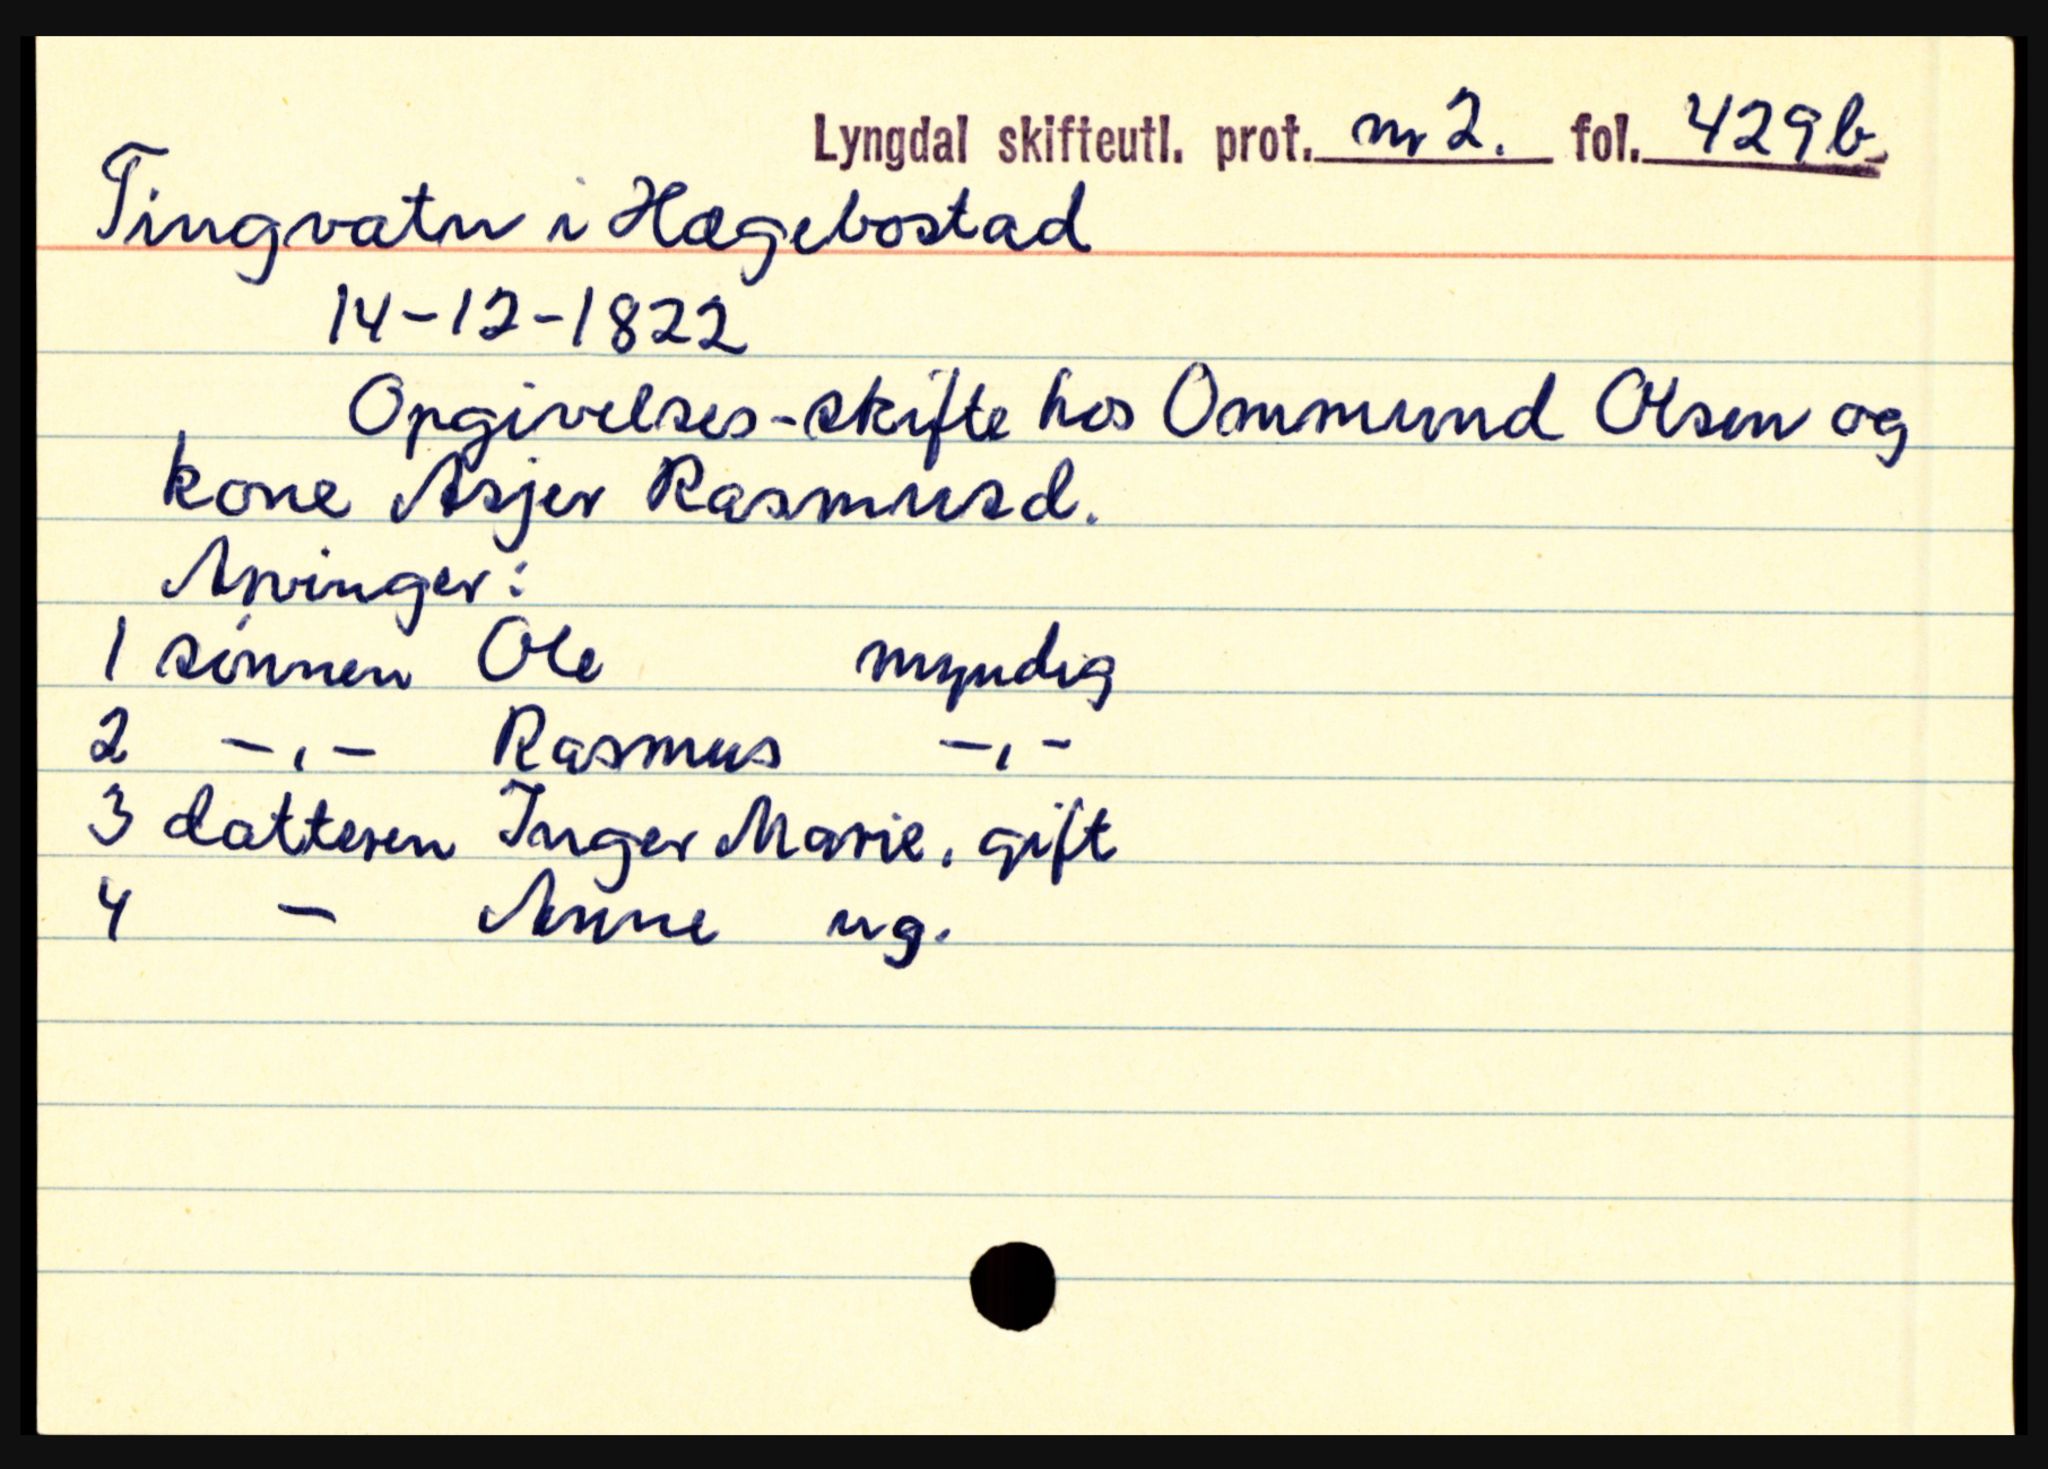 Lyngdal skifteutl. prot. nr 2. fol. 429b
Tingvatn i Hægebostad
14-12-1822
Opgivelses-skifte hos Ommund Olsen og
kone Asjer Rasmusd.
Arvinger:
1 sønnen Ole myndig
2 -,- Rasmus -,-
3 datteren Inger Marie, gift
4 - Anne ug.